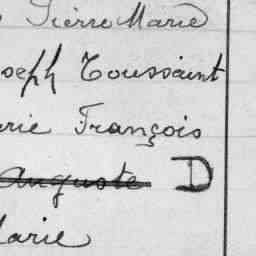 Pierre Marie
oseph Toussaint
rie François
Auguste D
arie